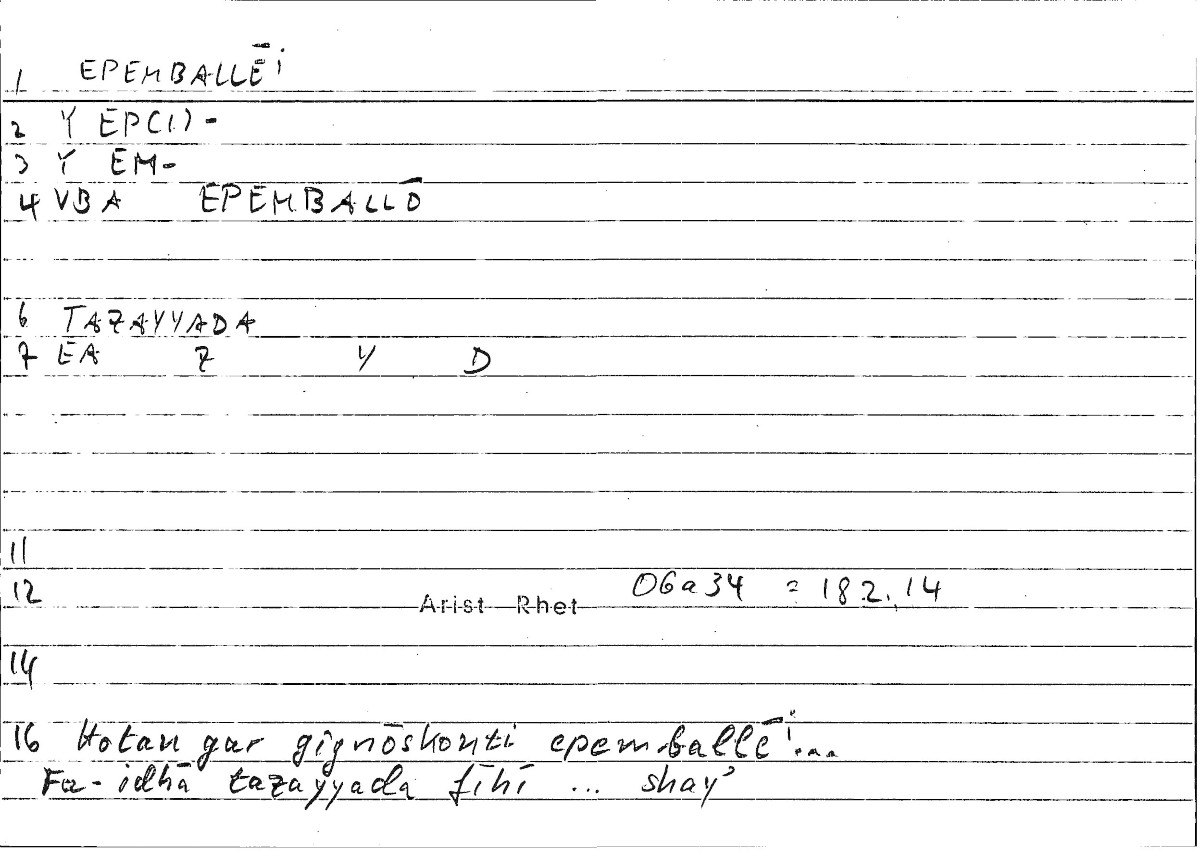 1 EPEMBALLĒi
2 Y EP(I)-
3 Y EM-
4 VBA EPEMBALLŌ
6 TAZAYYADA
7 EA Z Y D
11
12 Arist Rhet 06a34 = 182,14
14
16 Hotan gar gignōskonti epemballēi...
Fa-idhā tazayyada fīhī ... shayʾ